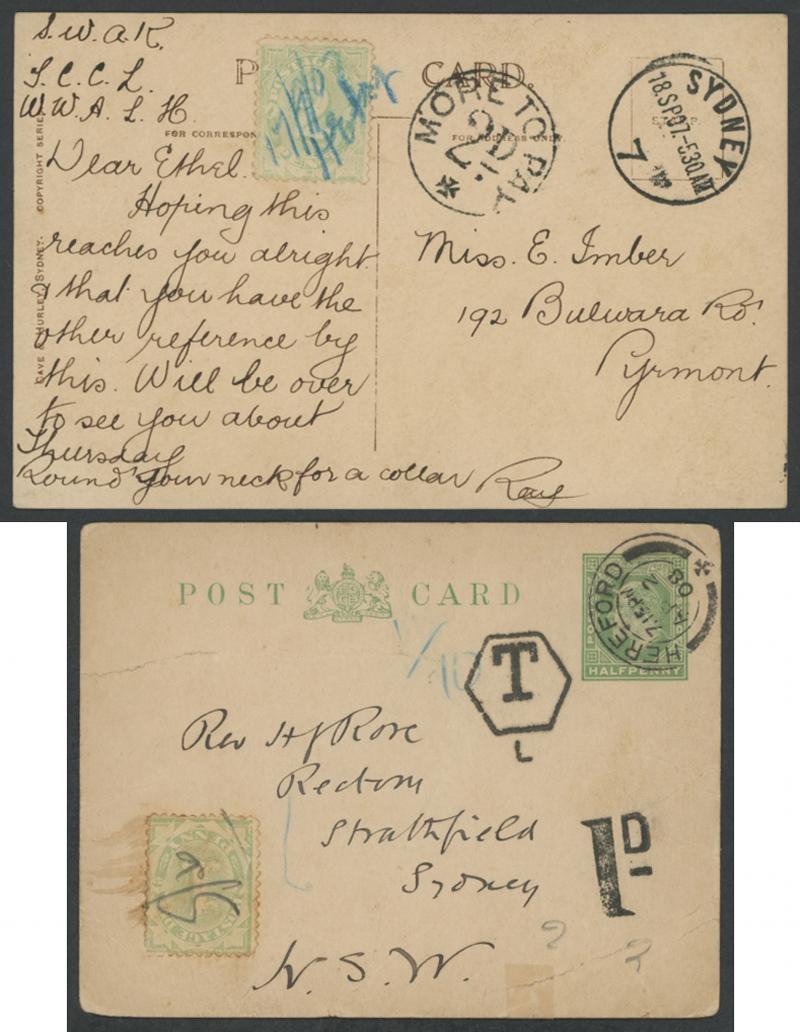 S.W.A.K.
S.C.C.L.
W.W.A.S.H.
CARD.
FOR CORRESPON
FOR ADDRESS ONLY.
MORE TO PAY
2D
SYDNEY
18.SP.07.-5 30.AM
7
COPYRIGHT SERIES
CAVE & HURLEY, SYDNEY.
Dear Ethel.
Hoping this
reaches you alright
& that you have the
other reference by
this. Will be over
to see you about
Thursday
Round your neck for a collar Ray
Miss. E. Imber
192 Bulwara Rd.
Pyrmont.
POST CARD
HEREFORD
7.15PM
2
AP
08
HALFPENNY
1/10
T
L
Rev H J Rose
Rectory
Strathfield
Sydney
N.S.W.
1D.
2
2